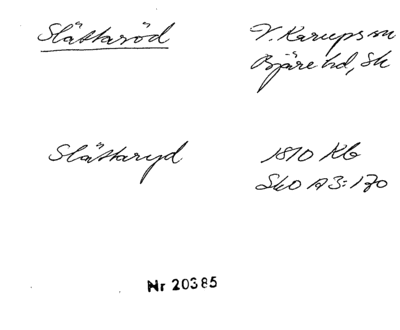 Slättaröd
V. Karups sn
Bjäre hd, Sk
Slättaryd
1810 Kb
SkO A3:170
Nr 20385